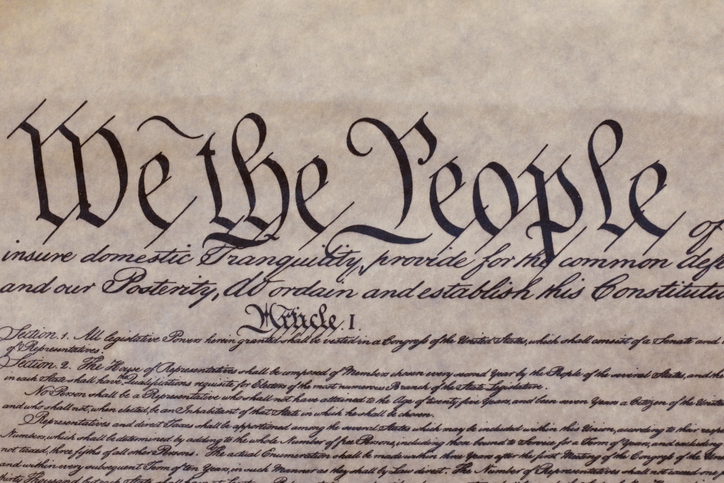 We the People of
insure domestic Tranquility, provide for the common defe
and our Posterity, do ordain and establish this Constitutio
Article I.
Section 1. All legislative Powers herein granted shall be vested in a Congress of the United States, which shall consist of a Senate and
of Representatives.
Section 2. The House of Representatives shall be composed of Members chosen every second Year by the People of the several States, and the
in each State shall have Qualifications requisite for Electors of the most numerous Branch of the State Legislature.
No Person shall be a Representative who shall not have attained to the Age of twenty five Years, and been seven Years a Citizen of the United
and who shall not, when elected, be an Inhabitant of that State in which he shall be chosen.
Representatives and direct Taxes shall be apportioned among the several States which may be included within this Union, according to their respe
Numbers, which shall be determined by adding to the whole Number of free Persons, including those bound to Service for a Term of Years, and excluding
not taxed, three fifths of all other Persons. The actual Enumeration shall be made within three Years after the first Meeting of the Congress of the Uni
and within every subsequent Term of ten Years, in such Manner as they shall by Law direct. The Number of Representatives shall not exceed one f
thirty Thousand, but each State shall have at Least